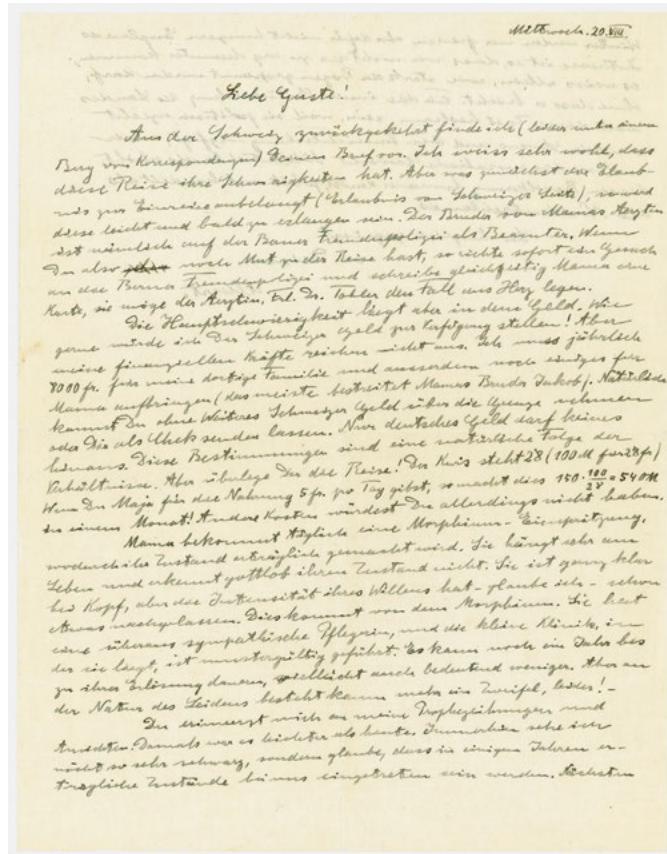 Mittwoch. 20. VIII.
Liebe Guste!
Aus der Schweiz zurückgekehrt finde ich (leider unter einem
Berg von Korrespondenzen) Deinen Brief vor. Ich weiss sehr wohl, dass
diese Reise ihre Schwierigkeiten hat. Aber was zunächst die Erlaub-
nis zur Einreise anbelangt (Erlaubnis von Schweizer Seite), so wird
diese leicht und bald zu erlangen sein. Der Bruder von Mamas Aerztin
ist nämlich auf der Berner Fremdenpolizei als Beamter. Wenn
Du also noch Mut zu der Reise hast, so richte sofort ein Gesuch
an die Berner Fremdenpolizei und schreibe gleichzeitig Mama eine
Karte, sie möge der Aerztin, Frl. Dr. Tobler den Fall ans Herz legen.
Die Hauptschwierigkeit liegt aber in dem Geld. Wie
gerne würde ich Dir Schweizer Geld zur Verfügung stellen! Aber
meine finanziellen Kräfte reichen nicht aus. Ich muss jährlich
8000 fr. für meine dortige Familie und ausserdem noch einiges für
Mama aufbringen (das meiste bestreitet Mamas Bruder Jakob). Natürlich
kannst Du ohne Weiteres Schweizer Geld über die Grenze nehmen
oder Dir als Check senden lassen. Nur deutsches Geld darf keines
hinaus. Diese Bestimmungen sind eine natürliche Folge der
Verhältnisse. Aber überlege Dir die Reise! Der Kurs steht 28 (100 M für 28 fr)
Wenn Du Maja für die Nahrung 5 fr. pro Tag gibst, so macht dies 150 · 100/28 = 540 M
in einem Monat! Andere Kosten würdest Du allerdings nicht haben.
Mama bekommt täglich eine Morphium-Einspritzung,
wodurch ihr Zustand erträglich gemacht wird. Sie hängt sehr am
Leben und erkennt gottlob ihren Zustand nicht. Sie ist ganz klar
bei Kopf, aber die Intensität ihres Willens hat - glaube ich - schon
etwas nachgelassen. Dies kommt von dem Morphium. Sie hat
eine überaus sympathische Pflegerin, und die kleine Klinik, in
der sie liegt, ist mustergültig geführt. Es kann noch ein Jahr bis
zu ihrer Erlösung dauern, vielleicht auch bedeutend weniger. Aber an
der Natur des Leidens besteht kaum mehr ein Zweifel, leider! -
Du erinnerst mich an meine Prophezeihungen und
Ansichten. Damals war es leichter als heute. Immerhin sehe ich
nicht so sehr schwarz, sondern glaube, dass in einigen Jahren er-
trägliche Zustände bei uns eingetreten sein werden. Nächsten